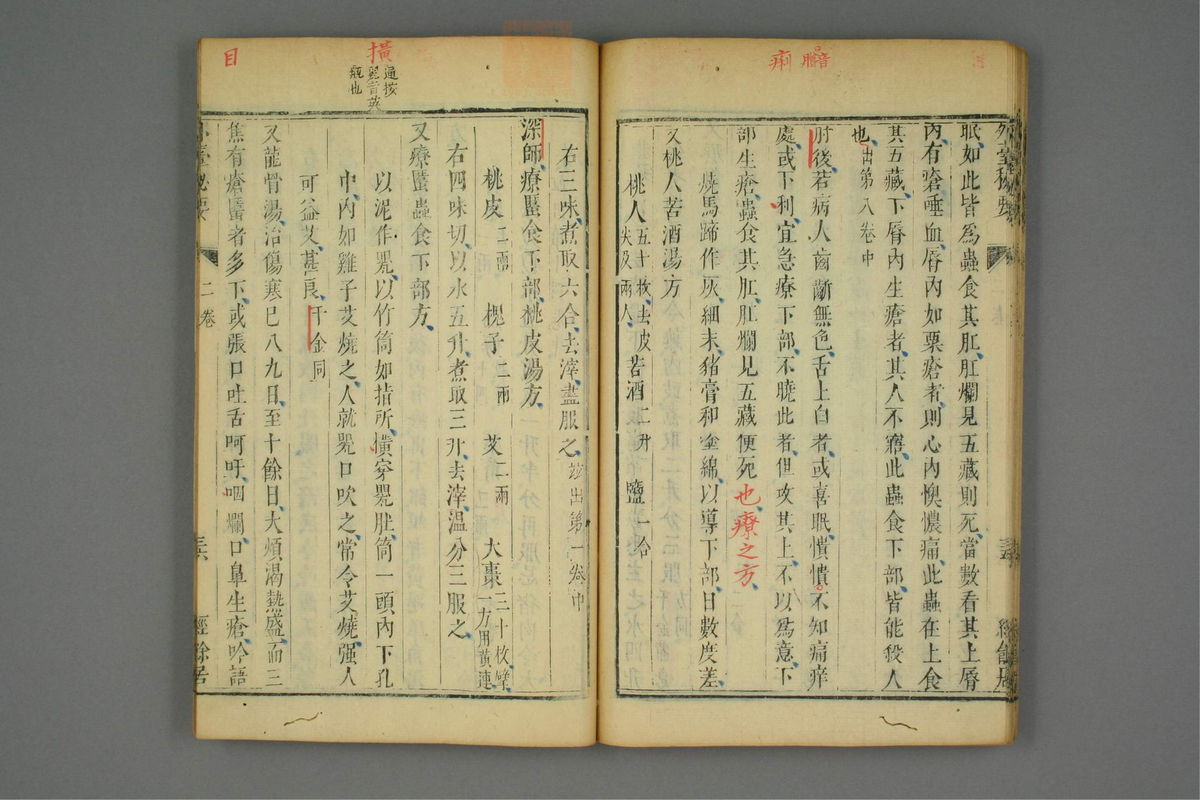 痢 膪
外臺秘要
眠如此皆為蟲食其肛肛爛見五藏則死當數看其上脣
內有瘡唾血脣內如粟瘡者則心內懊憹痛此蟲在上食
其五藏下脣內生瘡者其人不寤此蟲食下部皆能殺人
也出第八卷中
肘後若病人齒齗無色舌上白者或喜眠憒憒不知痛痒
處或下利宜急療下部不曉此者但攻其上不以為意下
部生瘡蟲食其肛肛爛見五藏便死也療之方
燒馬蹄作灰細末豬膏和塗綿以導下部日數度差
又桃人苦酒湯方
桃人五十枚去皮尖及兩人 苦酒二升 鹽一合
右三味煮取六合去滓盡服之並出第一卷中
深師療䘌食下部桃皮湯方
桃皮二兩 槐子二兩 艾二兩 大棗三十枚擘一方用黃連
右四味切以水五升煮取三升去滓溫分三服之
又療䘌蟲食下部方
以泥作甖以竹筒如指所橫穿甖肚筒一頭內下孔
中內如雞子艾燒之人就甖口吹之常令艾燒强人
可益艾甚良千金同
又龍骨湯治傷寒已八九日至十餘日大煩渴熱盛而三
焦有瘡䘌者多下或張口吐舌呵吁咽爛口鼻生瘡吟語
外臺秘要 二卷 三六 經餘居
目